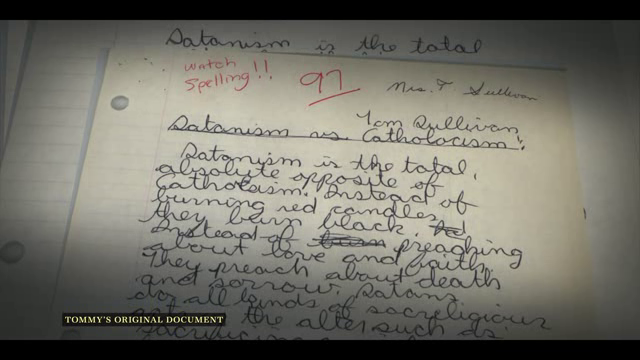 Satanism is the total
watch
spelling!!
97
Mrs. T. Sullivan
Tom Sullivan
Satanism vs. Catholocism!
Satanism is the total,
absolute opposite of
Instead of
burning red candles
they burn black.
Instead of preaching
about love and faith
They preach about death
and sorrow. Satans
do all kinds of sacreligious
the alter such as
TOMMY'S ORIGINAL DOCUMENT